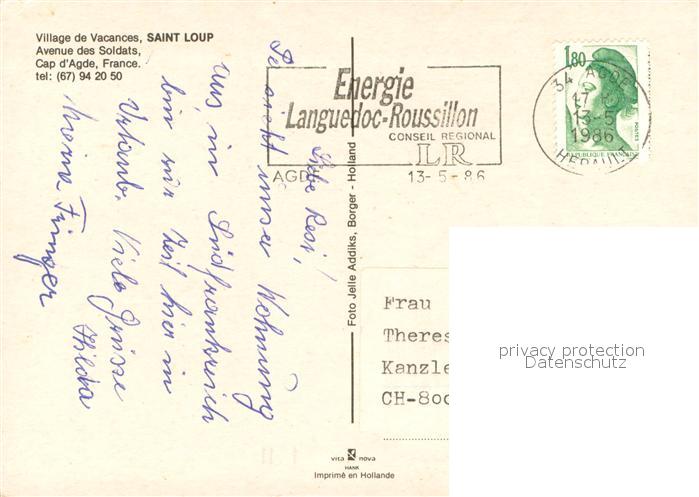 Village de Vacances, SAINT LOUP
Avenue des Soldats,
Cap d'Agde, France.
tel: (67) 94 20 50
Liebe Resi,
So sieht unser Wohnung
aus, in Südfrankreich
bin zur Zeit hier in
Urlaub. Viele Grüsse
Hilda
Energie
Languedoc-Roussillon
CONSEIL REGIONAL
LR
AGDE 13-5-86
1,80
34 AGDE
17
13-5
1986
HERAULT
POSTES
REPUBLIQUE FRANÇAISE
Foto Jelle Addiks, Borger - Holland
Frau
Theres
Kanzle
CH-800
privacy protection
Datenschutz
vita nova
HANK
Imprimé en Hollande